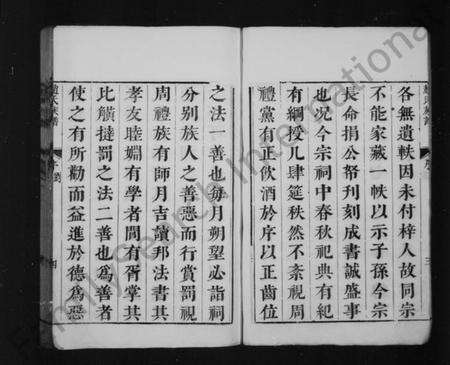 各無遺軼因未付梓人故同宗
不能家藏一帙以示子孫今宗
長命捐公帑刊刻成書誠盛事
也况今宗祠中春秋祀典有紀
有綱授几肆筵秩然不紊視周
禮黨有正飲酒於序以正齒位
之法一善也每月朔望必詣祠
分别族人之善惡而行賞罰視
周禮族有師月吉讀邦法書其
孝友睦婣有學者閭有胥掌其
比觵撻罰之法二善也為善者
使之有所勸而益進於德為惡
FamilySearch International